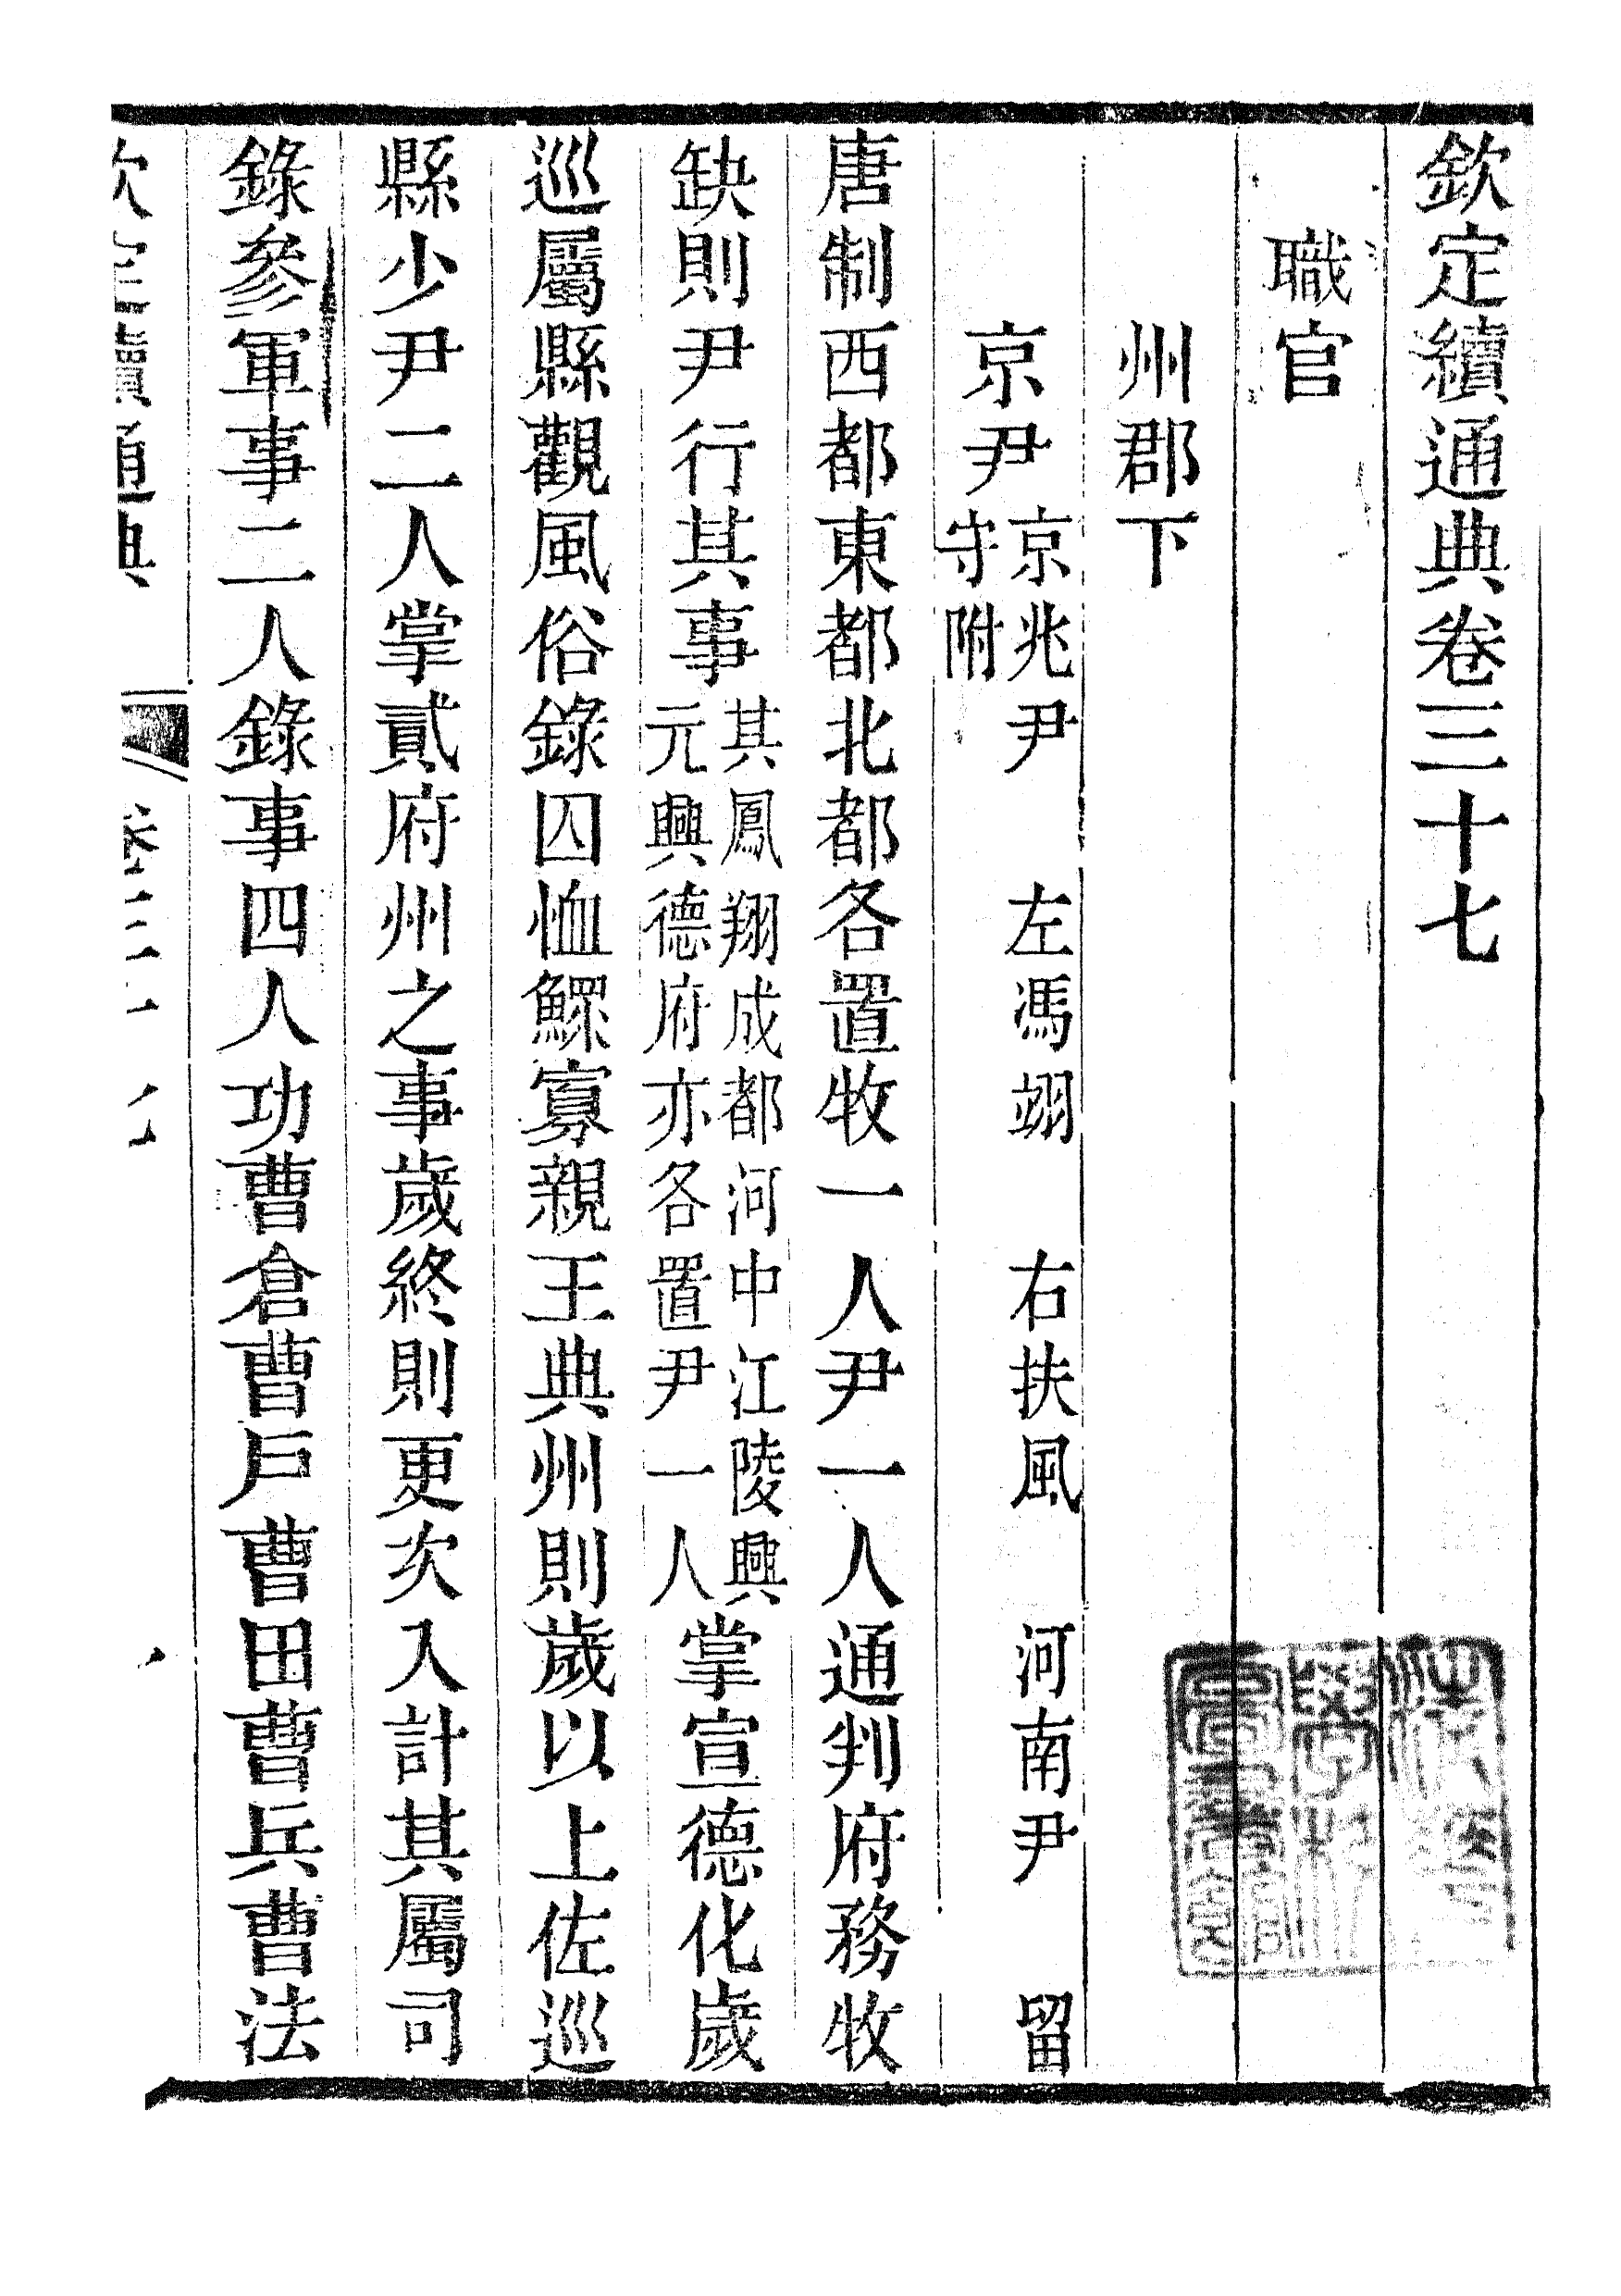 欽定續通典卷三十七
職官
州郡下
京尹京兆尹　左馮翊　右扶風　河南尹　留守附
唐制西都東都北都各置牧一人尹一人通判府務牧
缺則尹行其事其鳳翔成都河中江陵興元興德府亦各置尹一人掌宣德化歲
巡屬縣觀風俗錄囚恤鰥寡親王典州則歲以上佐巡
縣少尹二人掌貳府州之事歲終則更次入計其屬司
錄參軍事二人錄事四人功曹倉曹戶曹田曹兵曹法